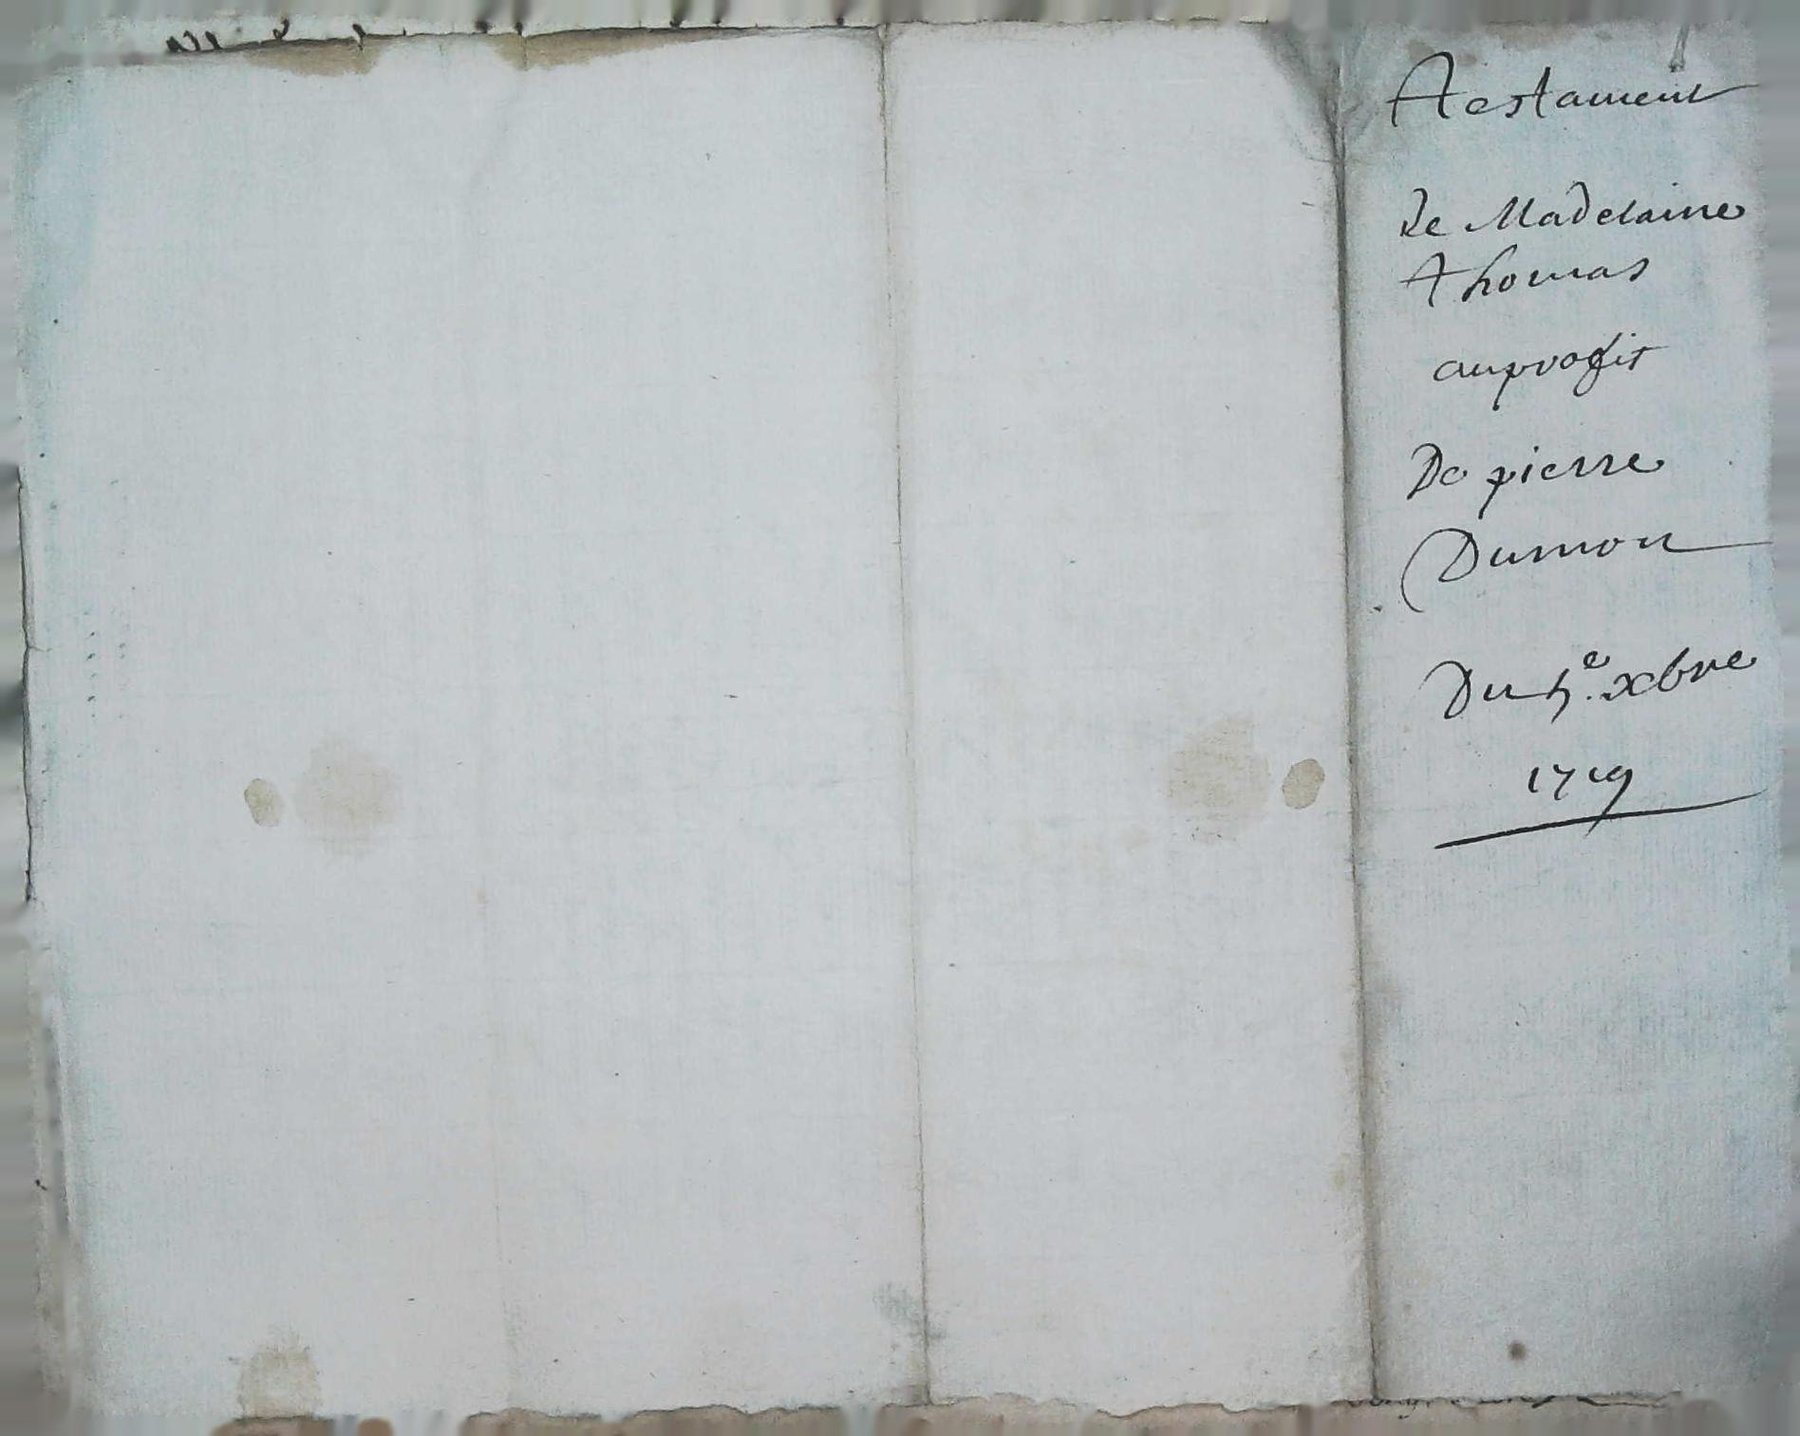 Testament
de Madelaine
Thomas
au profit
De pierre
Dumon
Du 5e. xbre
1719